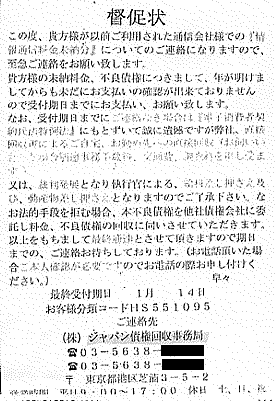 督促状
この度、貴方様が以前ご利用された通信会社様での『情
報通信料金未納分』についてのご連絡になりますので、
至急ご連絡をお願い致します。
貴方様の未納料金、不良債権につきまして、年が明けま
してからも未だにお支払いの確認が出来ておりません
ので受付期日までにお支払い、お願い致します。
なお、受付期日までにご連絡なき場合は『電子消費者契
約民法特例法』にもとずいて誠に遺憾ですが弊社、直接
回収
ます。
又は、裁判発展となり執行官による、給料差し押さえ及
び、動産物差し押さえとなりますのでご了承下さい。な
お法的手段を拒む場合、本不良債権を他社債権会社に委
託し料金、不良債権の回収に伺いさせていただきます。
以上をもちまして最終勧達とさせて頂きますので期日
までの、ご連絡お待ちしております。(お電話頂いた場
合ご本人確認が必要ですのでお電話の際お申し付けく
ださい。) 早々
最終受付期日 1月 14日
お客様分類コードHS551095
ご連絡先
(株) ジャパン債権回収事務局
☎03-5638-
☎03-5638-
〒 東京都港区芝浦3-5-2
営業時間 平日9:00~17:00 休日 土、日、祝